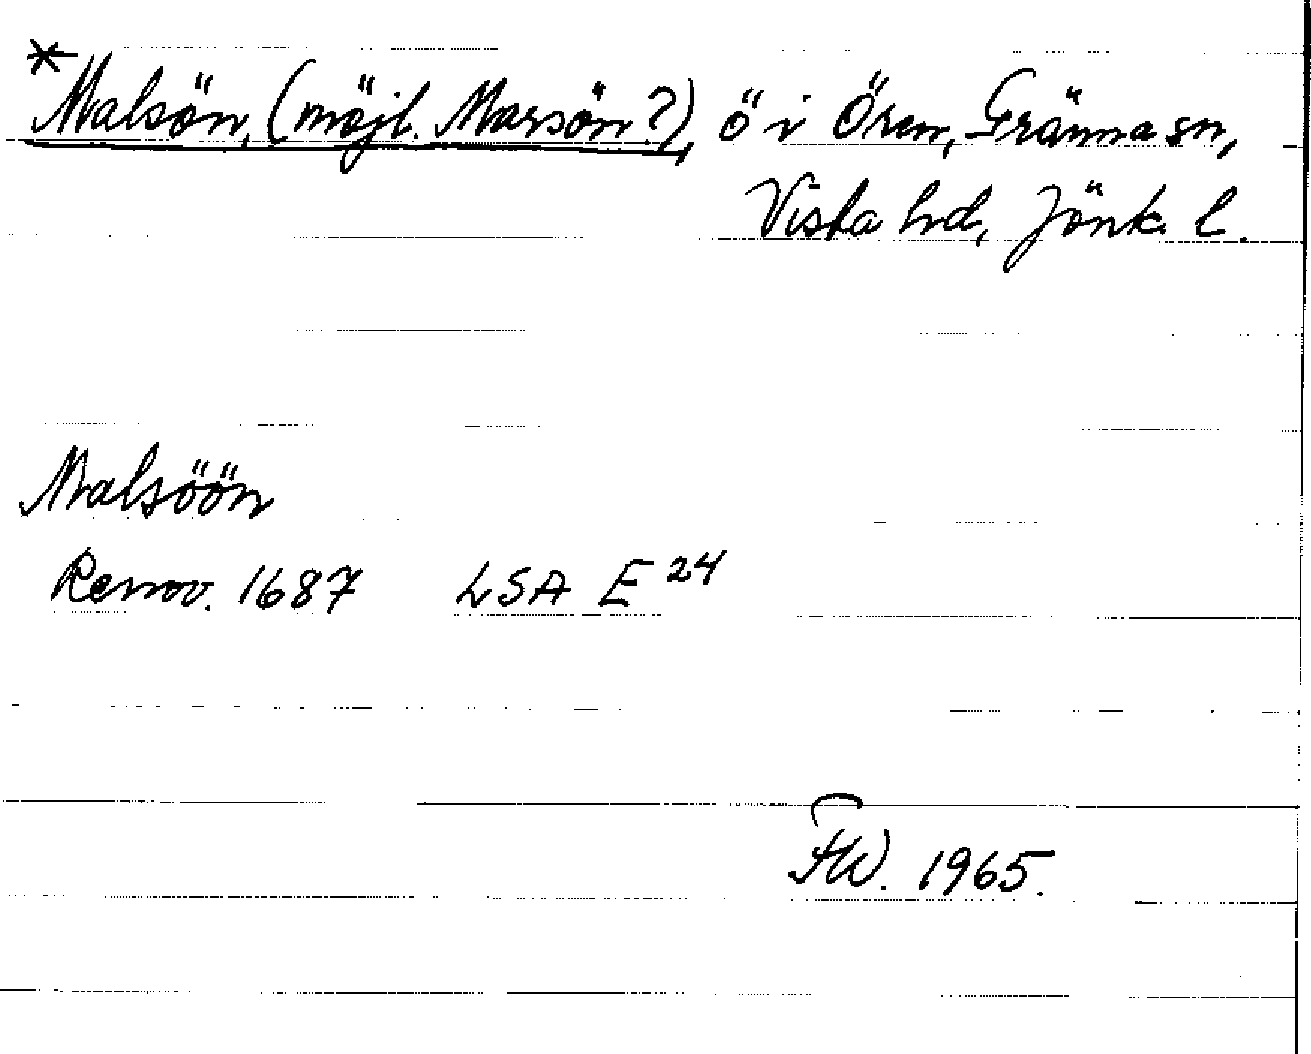 *Malsön, (möjl. Marsön?), ö i Ören, Gränna sn,
Vista hd, Jönk. l.
Malsöön
Renov. 1687 LSA E 24
FW. 1965.